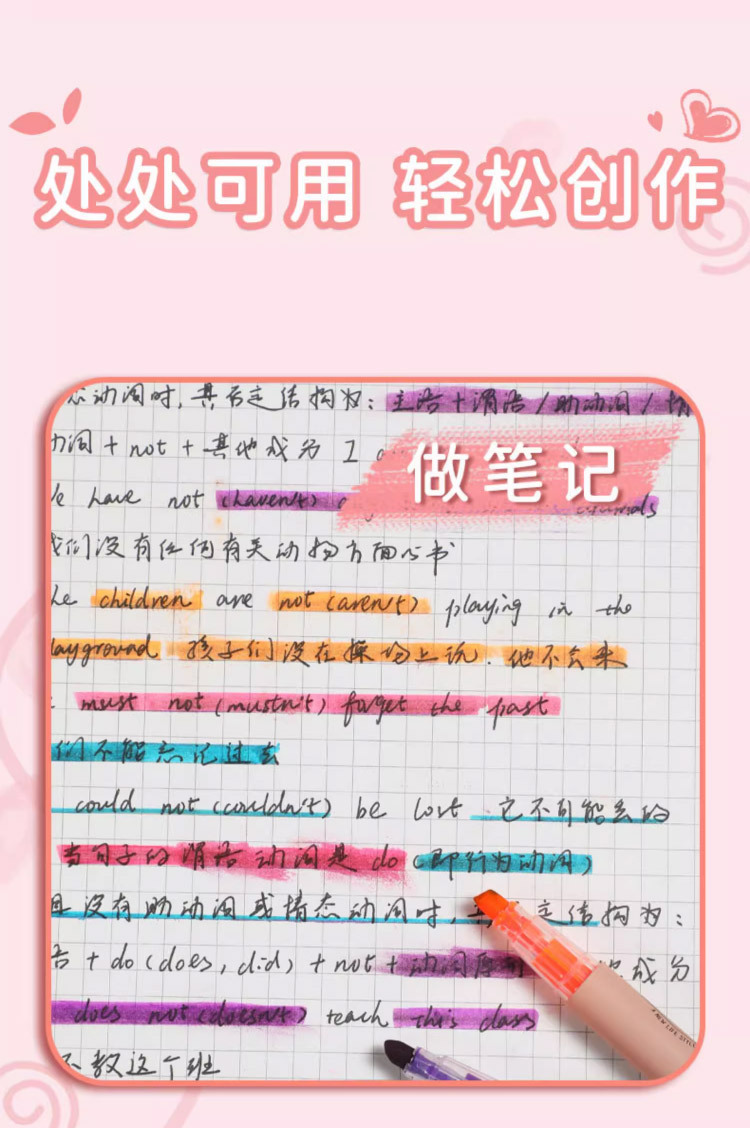 处处可用 轻松创作
做笔记
态动词时,其否定结构为:主语+谓语/助动词/情
动词+not+其他成分 I
We have not (haven't)
我们没有任何有关动物方面的书
he children are not (aren't) playing in the
layground 孩子们没在操场上玩.他不会来
must not (mustn't) forget the past
们不能忘记过去
could not (couldn't) be lost 它不可能丢的
当句子的谓语动词是do(即行为动词)
且没有助动词或情态动词时,其 定结构为:
语+do(does,did)+not+动词原 成分
does not (doesn't) teach this class
不教这个班